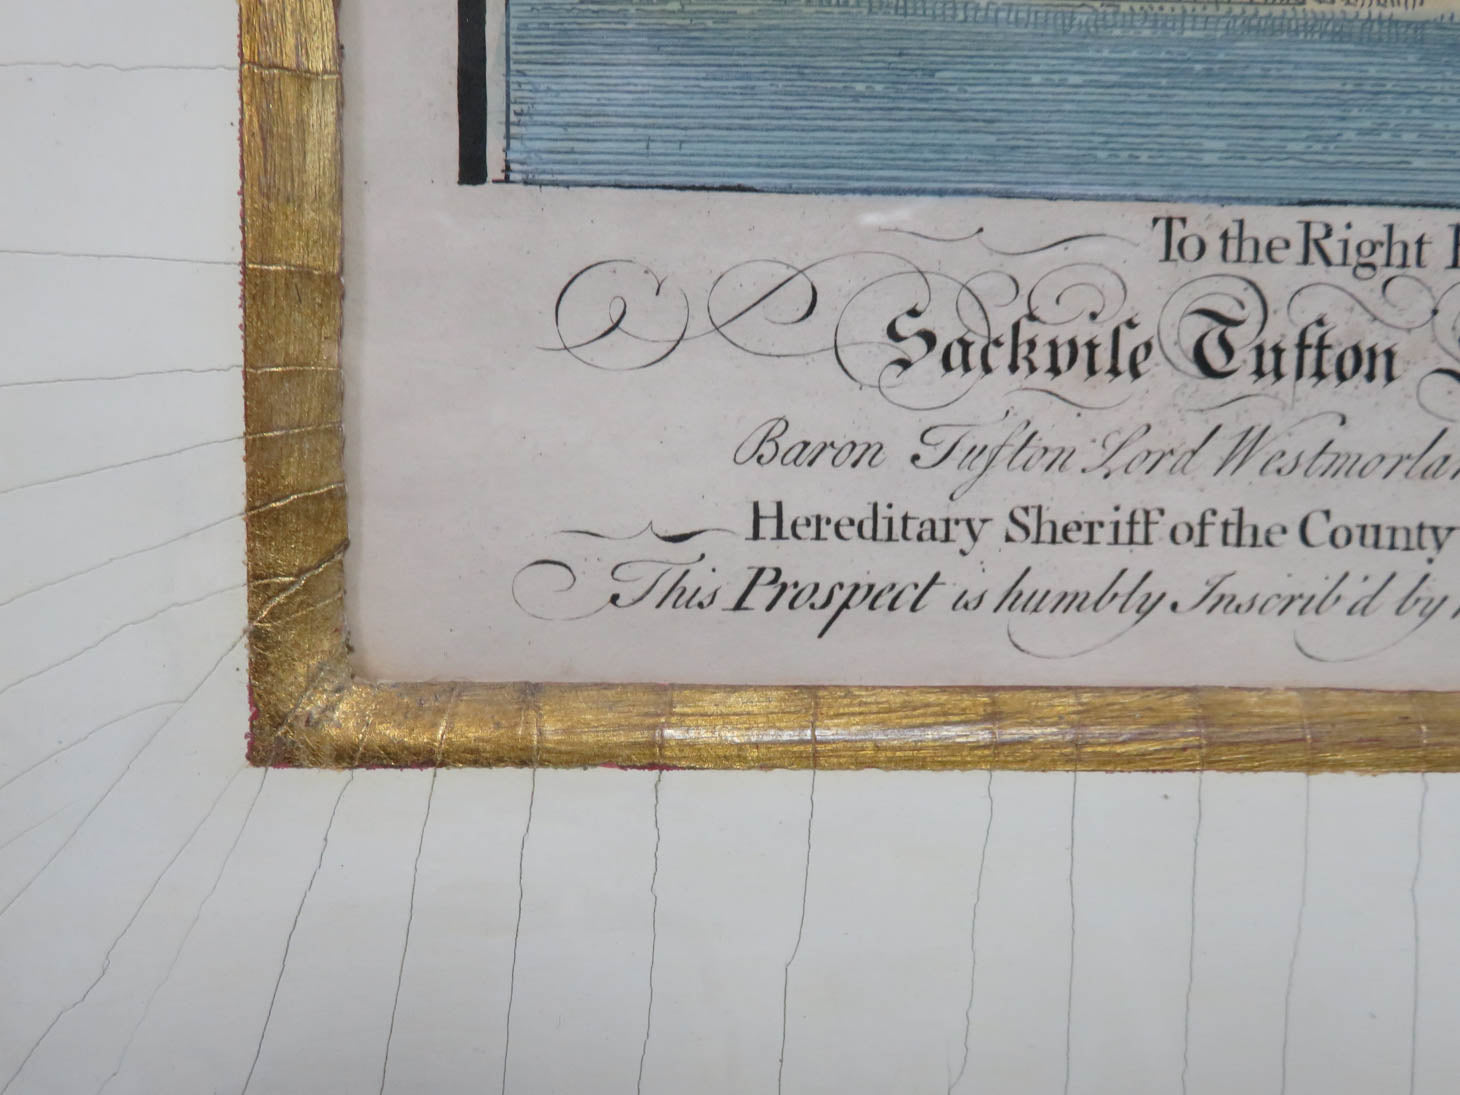 To the Right
Sackvile Tufton
Baron Tufton Lord Westmorla
Hereditary Sheriff of the County
This Prospect is humbly Inscrib'd by